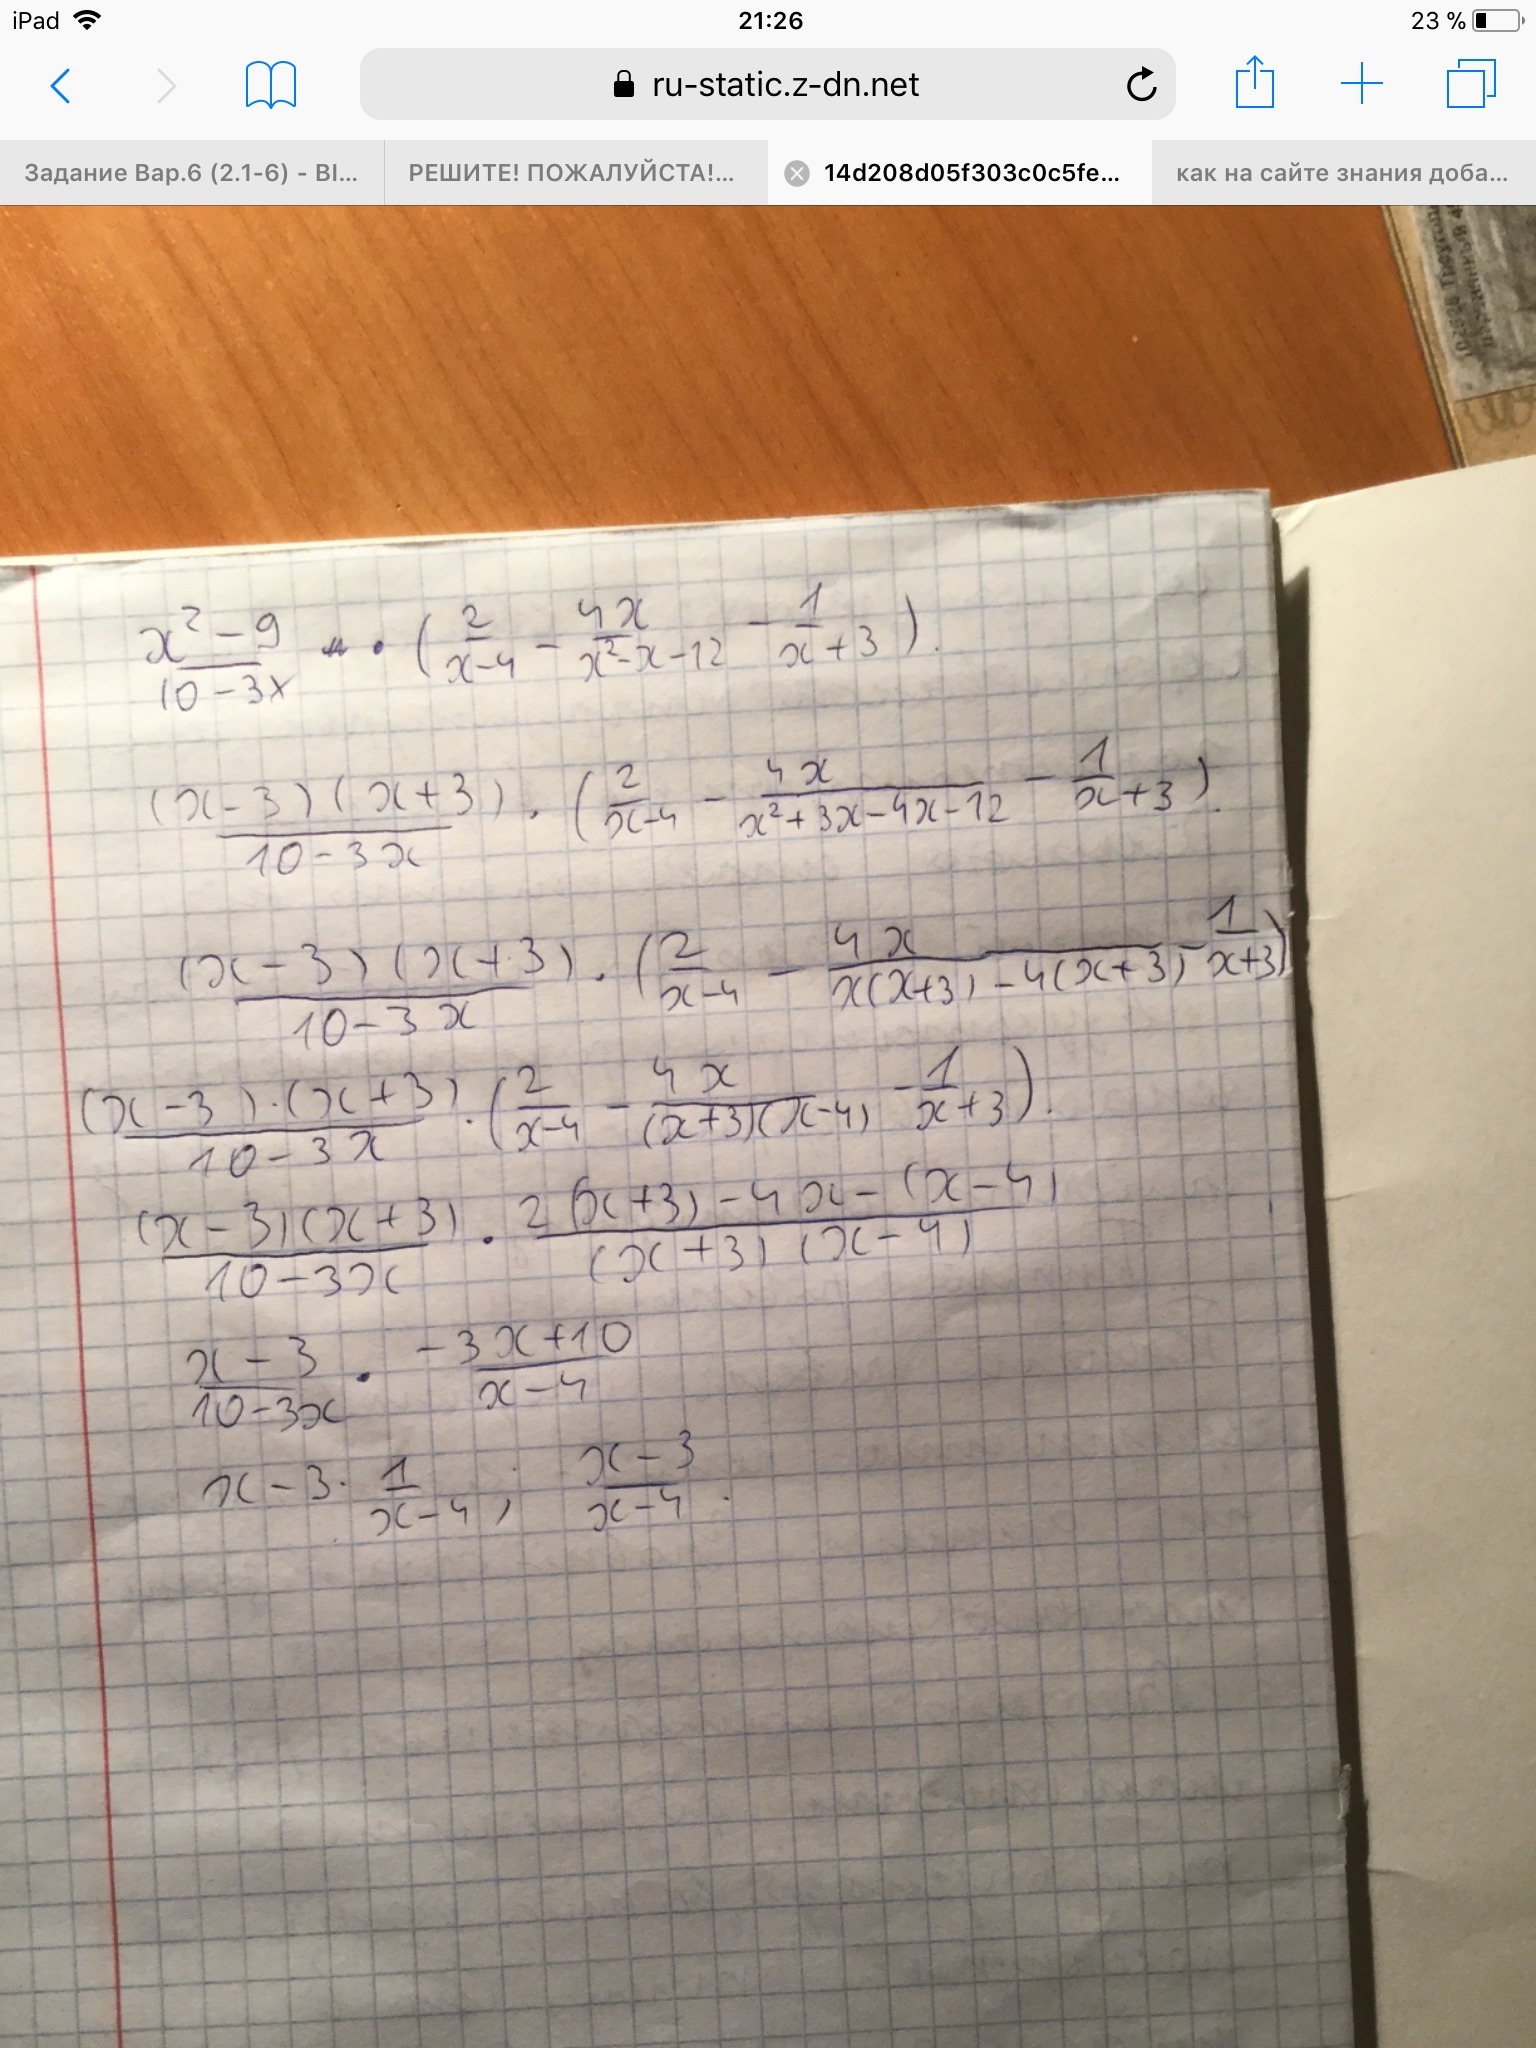 iPad 21:26 23 %
ru-static.z-dn.net
Задание Вар.6 (2.1-6) - BI... РЕШИТЕ! ПОЖАЛУЙСТА!... 14d208d05f303c0c5fe... как на сайте знания доба...
(x²-9)/(10-3x) · (2/(x-4) - 4x/(x²-x-12) - 1/(x+3)).
(x-3)(x+3)/(10-3x) · (2/(x-4) - 4x/(x²+3x-4x-12) - 1/(x+3)).
(x-3)(x+3)/(10-3x) · (2/(x-4) - 4x/(x(x+3)-4(x+3)) - 1/(x+3))
(x-3)·(x+3)/(10-3x) · (2/(x-4) - 4x/((x+3)(x-4)) - 1/(x+3)).
(x-3)(x+3)/(10-3x) · (2(x+3)-4x-(x-4))/((x+3)(x-4))
(x-3)/(10-3x) · (-3x+10)/(x-4)
x-3 · 1/(x-4); (x-3)/(x-4).